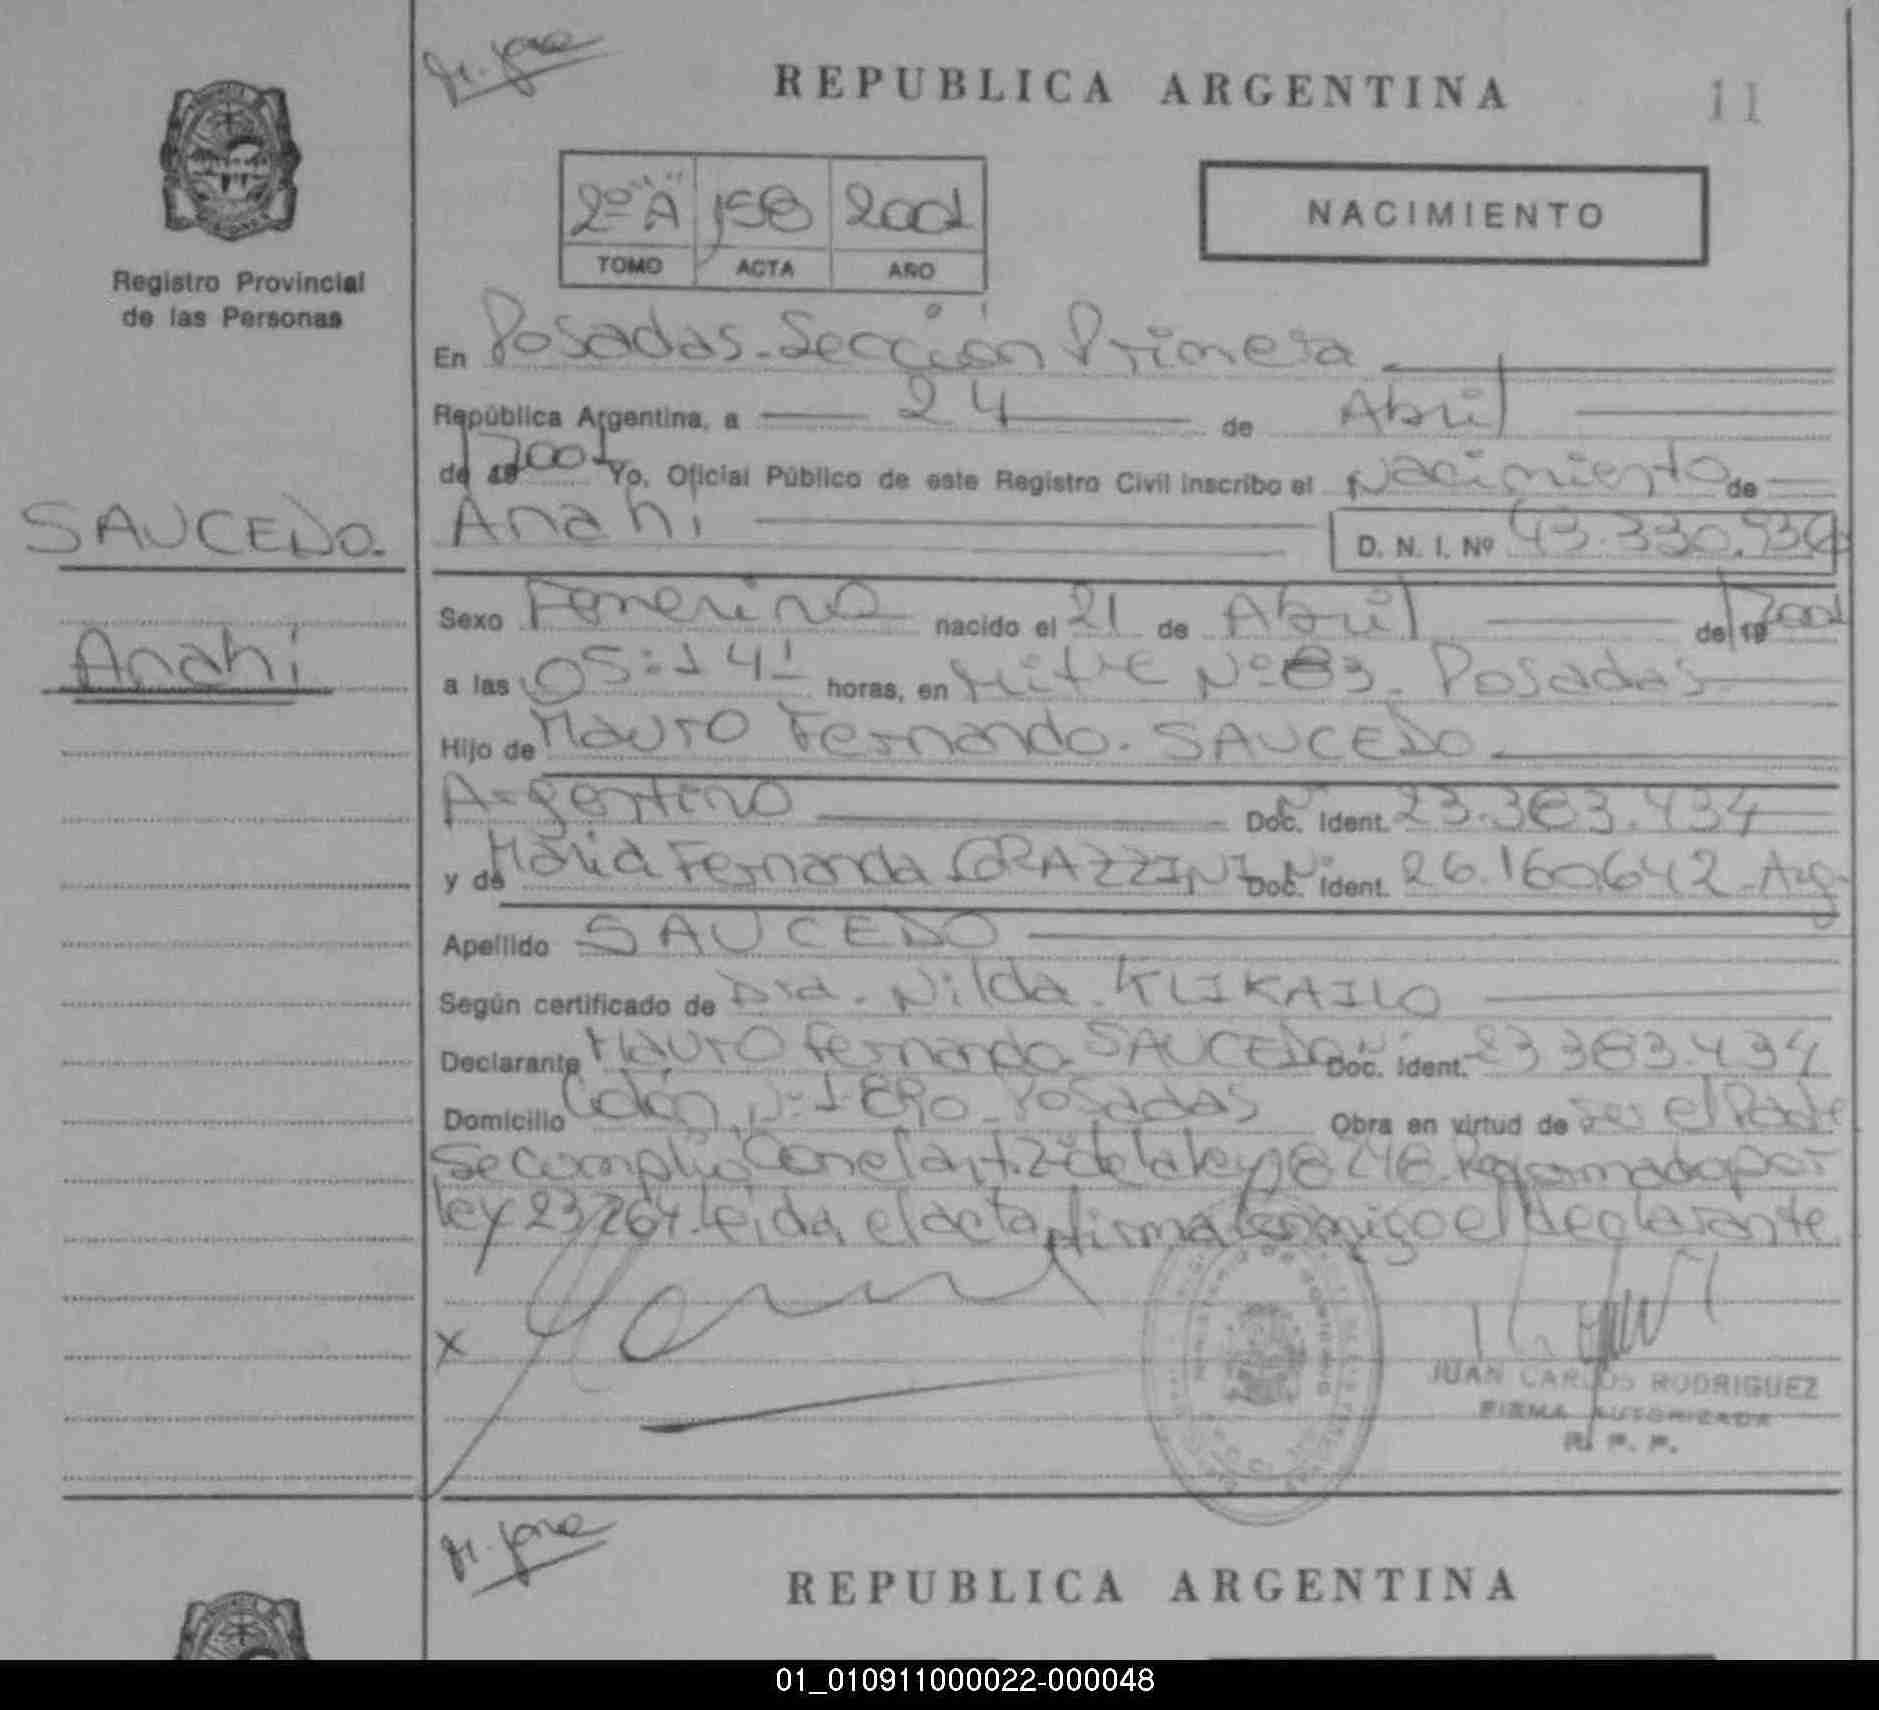 REPUBLICA ARGENTINA
11
2º "A" 158 2001
TOMO ACTA AÑO
NACIMIENTO
Registro Provincial
de las Personas
En Posadas. Sección Primera
República Argentina, a 24 de Abril
de 19 2001 Yo, Oficial Público de este Registro Civil inscribo el Nacimiento de
SAUCEDO.
Anahi
Anahi D. N. I. Nº 43.330.536
Sexo Femenino nacido el 21 de Abril de 19 2001
a las 05:14' horas, en Mitre Nº 83. Posadas
Hijo de Mauro Fernando. SAUCEDO.
Argentino Doc. Ident. Nº 23.383.434
y de Maria Fernanda CORAZZINI Doc. Ident. Nº 26.160.642 - Arg.
Apellido SAUCEDO
Según certificado de Dra. Nilda. KLIKAILO
Declarante Mauro Fernando SAUCEDO Doc. Ident. Nº 23.383.434
Domicilio Colón Nº 1890 - Posadas Obra en virtud de ser el Padre
Se cumplio con el art. 2º de la ley 18248. Reformado por
ley 23264. Leida el acta, firma conmigo el declarante
X
JUAN CARLOS RODRIGUEZ
FIRMA AUTORIZADA
R. P. P.
REPUBLICA ARGENTINA
01_010911000022-000048